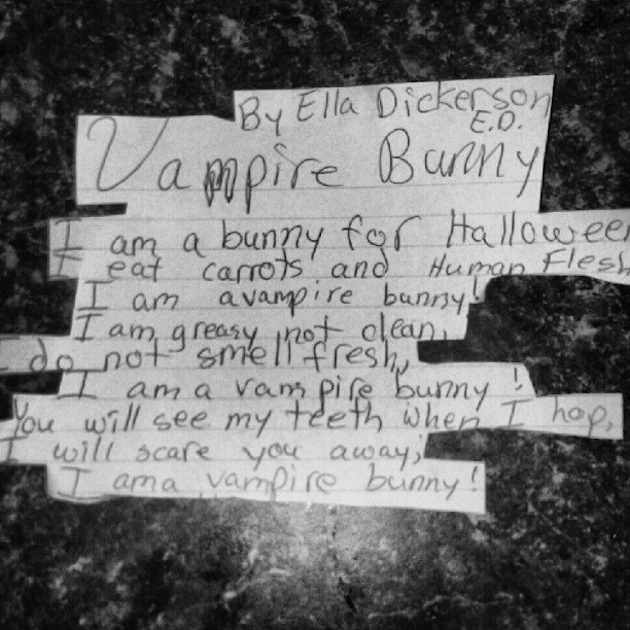 By Ella Dickerson
E.D.
Vampire Bunny
I am a bunny for Halloween
I eat carrots and Human Flesh
I am a vampire bunny!
I am greasy not clean,
I do not smell fresh,
I am a vampire bunny!
You will see my teeth when I hop,
I will scare you away;
I am a vampire bunny!